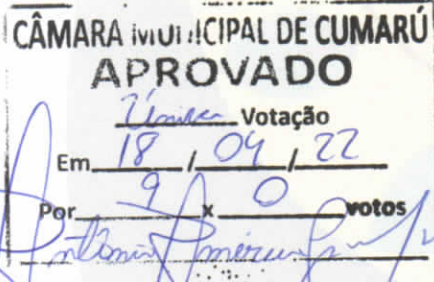 CÂMARA MUNICIPAL DE CUMARÚ
APROVADO
Única Votação
Em 18 / 04 / 22
Por 9 x 0 votos
Antônio